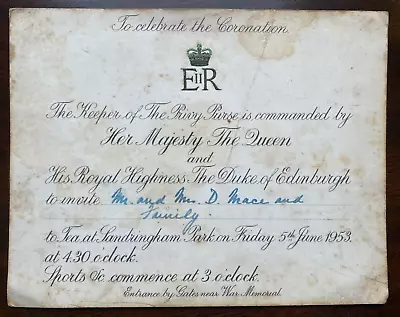 To celebrate the Coronation.
EIIR
The Keeper of The Privy Purse is commanded by
Her Majesty The Queen
and
His Royal Highness The Duke of Edinburgh
to invite Mr. and Mrs. D. Mace and
Family.
to Tea at Sandringham Park on Friday 5th June 1953.
at 4.30 o.clock.
Sports &c. commence at 3 o.clock.
Entrance by Gates near War Memorial.